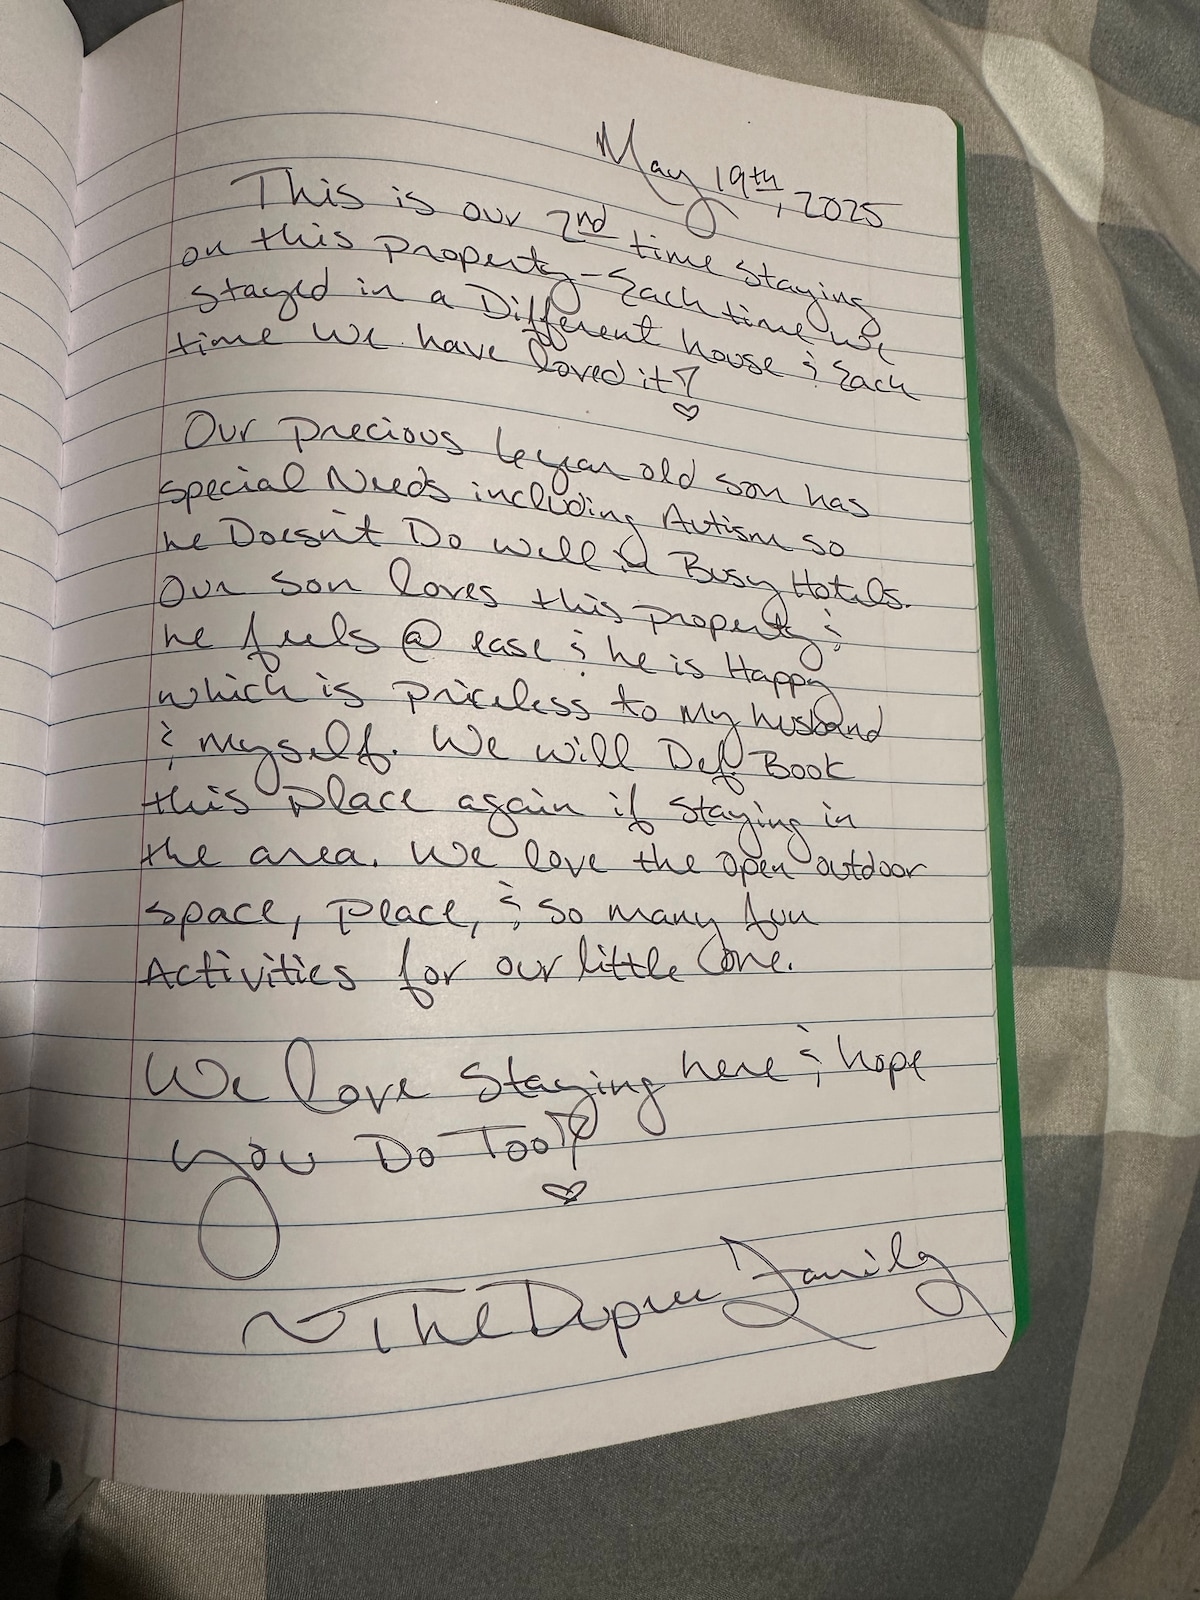 May 19th, 2025
This is our 2nd time staying
on this property - Each time we
stayed in a Different house & Each
time we have loved it!
Our precious 6 year old son has
special Needs including Autism so
he Doesn't Do well in Busy Hotels.
Our son loves this property &
he feels @ ease & he is Happy
which is priceless to my husband
& myself. We will Def. Book
this place again if staying in
the area. We love the open outdoor
space, peace, & so many fun
Activities for our little one.
We love staying here & hope
you Do Too!
~ The Dupree Family